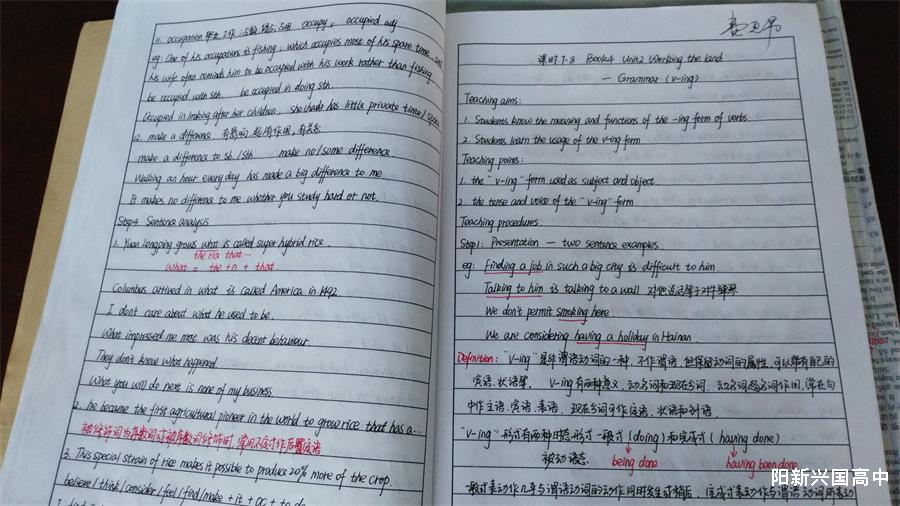 11. occupation 职业,工作;占领,侵占,占用 occupy v. occupied adj
eg: One of his occupations is fishing, which occupies most of his spare time.
his wife often reminds him to be occupied with his work rather than fishing.
be occupied with sth. be occupied in doing sth.
Occupied in looking after her children, she has little private time/space
2. make a difference 有影响,起作用,有关系
make a difference to sb./sth. make no/some difference.
Walking an hour every day has made a big difference to me
It makes no difference to me whether you study hard or not.
Step4 Sentence analysis
1. Yuan Longping grows what is called super hybrid rice.
the rice that...
what = the + n + that.
Columbus arrived in what is called America in 1492.
I don't care about what he used to be.
What impressed me most was his decent behaviour.
They don't know what happened.
What you will do next is none of my business.
2. he became the first agricultural pioneer in the world to grow rice that has a...
被修饰词为序数词或被序数词修饰时,常用不定式作后置定语
3. This special strain of rice makes it possible to produce 20% more of the crop.
believe/think/consider/feel/find/make + it + OC + to do
课时7-8 Book4 Unit2 Working the land
— Grammar (v-ing)
Teaching aims:
1. Students know the meaning and functions of the -ing form of verbs
2. Students learn the usage of the v-ing form
Teaching points:
1. the "v-ing" form used as subject and object.
2. the tense and voice of the "v-ing" form
Teaching procedures.
Step1: Presentation — two sentence examples.
eg: Finding a job in such a big city is difficult to him.
Talking to him is talking to a wall 对他说话等于对牛弹琴
We don't permit smoking here.
We are considering having a holiday in Hainan
Definition: "V-ing"是非谓语动词的一种,不作谓语,但保留动词的属性,可以带有自己的
宾语,状语等. V-ing有两种意义,动名词和现在分词. 动名词起名词作用,常在句
中作主语,宾语,表语. 现在分词可作定语,状语和补语.
"V-ing"形式有两种时态形式 一般式(doing)和完成式(having done)
被动语态: being done having been done
一般式表动作几乎与谓语动词的动作同时发生或稍后, 完成式表动作与谓语动词所表动
阳新兴国高中